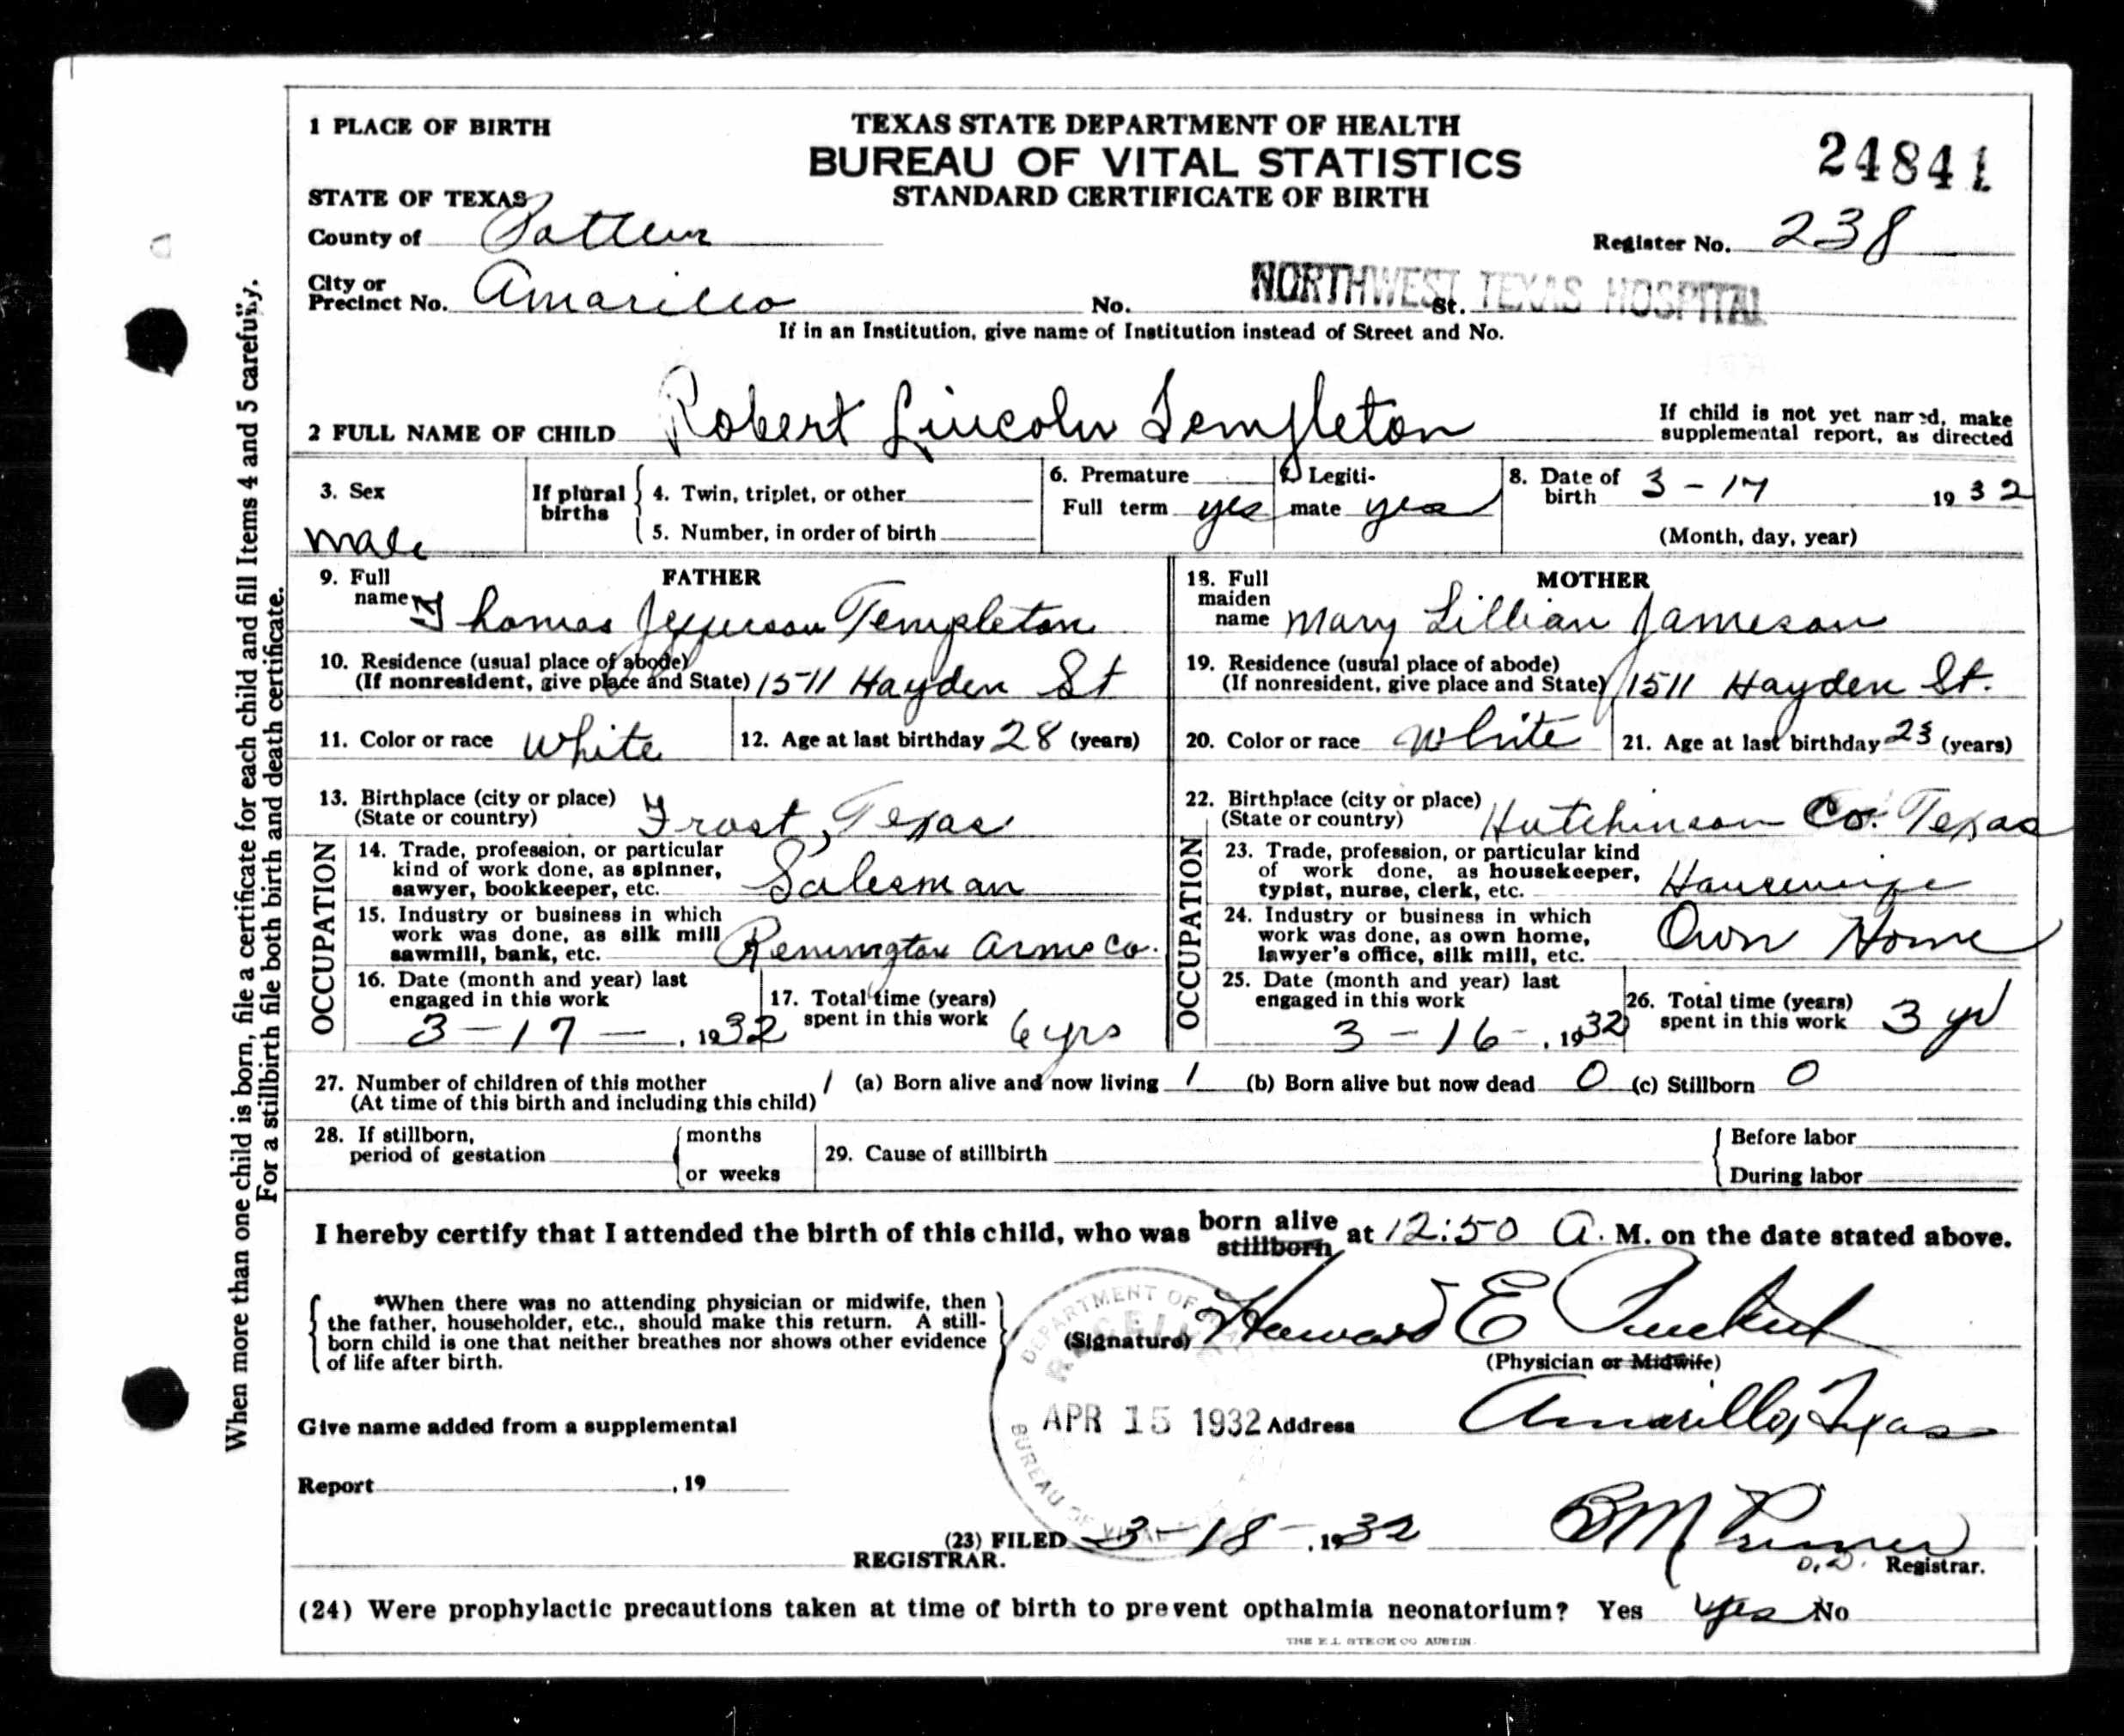 1 PLACE OF BIRTH
TEXAS STATE DEPARTMENT OF HEALTH
BUREAU OF VITAL STATISTICS
STANDARD CERTIFICATE OF BIRTH
24841
STATE OF TEXAS
County of Potter
Register No. 238
City or Precinct No. Amarillo
No. St. NORTHWEST TEXAS HOSPITAL
If in an Institution, give name of Institution instead of Street and No.
2 FULL NAME OF CHILD Robert Lincoln Templeton
If child is not yet named, make
supplemental report, as directed
3. Sex male
If plural births
4. Twin, triplet, or other
5. Number, in order of birth
6. Premature
Full term yes
Legiti-
mate yes
8. Date of birth 3 - 17 1932
(Month, day, year)
FATHER
9. Full name Thomas Jefferson Templeton
10. Residence (usual place of abode)
(If nonresident, give place and State) 1511 Hayden St
11. Color or race White
12. Age at last birthday 28 (years)
13. Birthplace (city or place)
(State or country) Frost, Texas
OCCUPATION
14. Trade, profession, or particular
kind of work done, as spinner,
sawyer, bookkeeper, etc. Salesman
15. Industry or business in which
work was done, as silk mill
sawmill, bank, etc. Remington Arms Co.
16. Date (month and year) last
engaged in this work
3 - 17 - , 1932
17. Total time (years)
spent in this work 6 yrs
MOTHER
18. Full maiden name Mary Lillian Jameson
19. Residence (usual place of abode)
(If nonresident, give place and State) 1511 Hayden St.
20. Color or race White
21. Age at last birthday 23 (years)
22. Birthplace (city or place)
(State or country) Hutchinson Co. Texas
OCCUPATION
23. Trade, profession, or particular kind
of work done, as housekeeper,
typist, nurse, clerk, etc. Housewife
24. Industry or business in which
work was done, as own home,
lawyer's office, silk mill, etc. Own Home
25. Date (month and year) last
engaged in this work
3 - 16 - , 1932
26. Total time (years)
spent in this work 3 yr
27. Number of children of this mother 1 (a) Born alive and now living 1 (b) Born alive but now dead 0 (c) Stillborn 0
(At time of this birth and including this child)
28. If stillborn,
period of gestation
months
or weeks
29. Cause of stillbirth
Before labor
During labor
I hereby certify that I attended the birth of this child, who was born alive stillborn at 12:50 A. M. on the date stated above.
*When there was no attending physician or midwife, then
the father, householder, etc., should make this return. A still-
born child is one that neither breathes nor shows other evidence
of life after birth.
(Signature) Howard E Puckett
(Physician or Midwife)
DEPARTMENT OF
APR 15 1932
BUREAU OF VITAL
Address Amarillo, Texas
Give name added from a supplemental
Report , 19
(23) FILED 3 - 18 - , 1932
REGISTRAR.
B M
Registrar.
(24) Were prophylactic precautions taken at time of birth to prevent opthalmia neonatorium? Yes yes No
THE E.L. STECK CO AUSTIN
When more than one child is born, file a certificate for each child and fill Items 4 and 5 carefully.
For a stillbirth file both birth and death certificate.